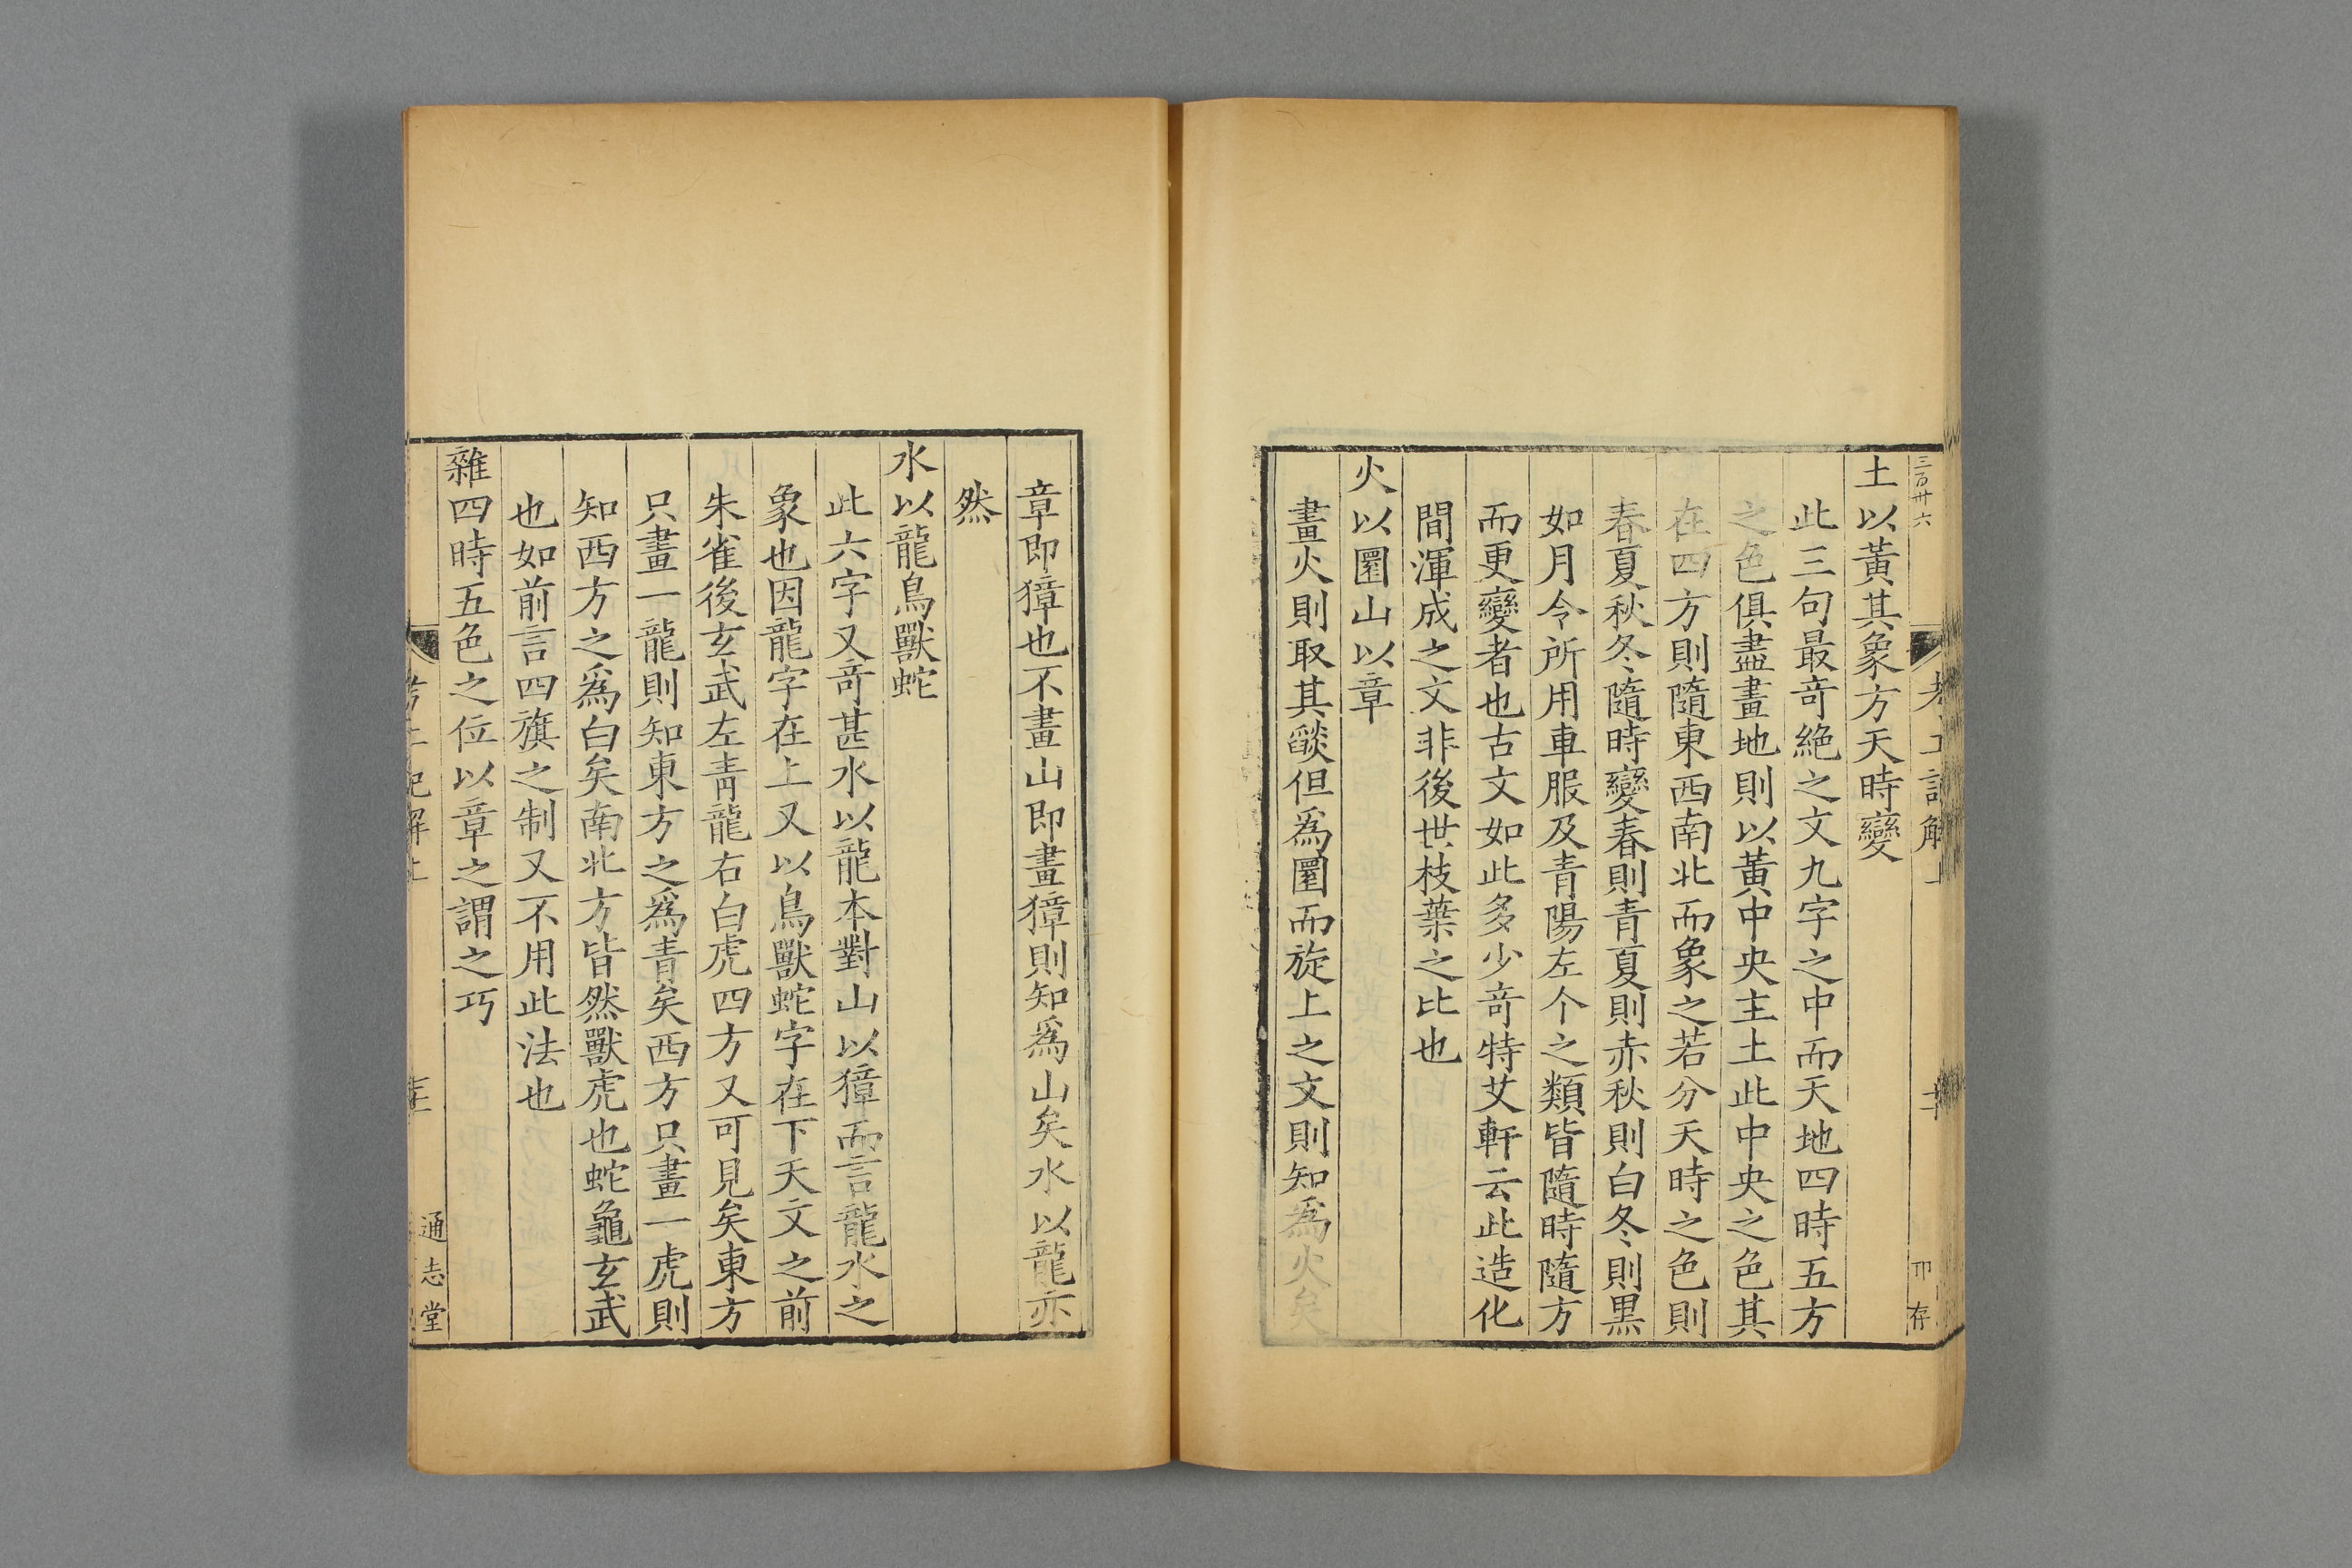 三百卅六
土以黃其象方天時變
此三句最竒絶之文九字之中而天地四時五方
之色俱盡畫地則以黃中央主土此中央之色其
在四方則隨東西南北而象之若分天時之色則
春夏秋冬隨時變春則青夏則赤秋則白冬則黑
如月令所用車服及青陽左个之類皆隨時隨方
而更變者也古文如此多少竒特艾軒云此造化
間渾成之文非後世枝葉之比也
火以圜山以章
畫火則取其燄但爲圜而旋上之文則知爲火矣
章即獐也不畫山即畫獐則知爲山矣水以龍亦
然
水以龍鳥獸蛇
此六字又竒甚水以龍本對山以獐而言龍水之
象也因龍字在上又以鳥獸蛇字在下天文之前
朱雀後玄武左青龍右白虎四方又可見矣東方
只畫一龍則知東方之爲青矣西方只畫一虎則
知西方之爲白矣南北方皆然獸虎也蛇龜玄武
也如前言四旗之制又不用此法也
雜四時五色之位以章之謂之巧
通志堂